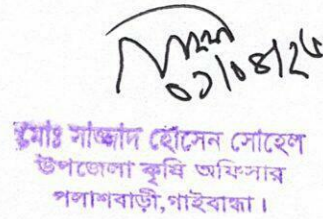 ০১/০৪/২৬
মোঃ সাজ্জাদ হোসেন সোহেল
উপজেলা কৃষি অফিসার
পলাশবাড়ী,গাইবান্ধা।